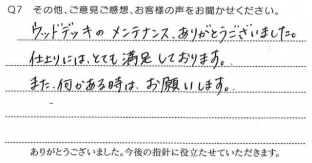 Q7 その他、ご意見ご感想、お客様の声をお聞かせください。
ウッドデッキの メンテナンス、ありがとうございました。
仕上りには、とても 満足しております。
また、何かある時は、お願いします。
ありがとうございました。今後の指針に役立たせていただきます。